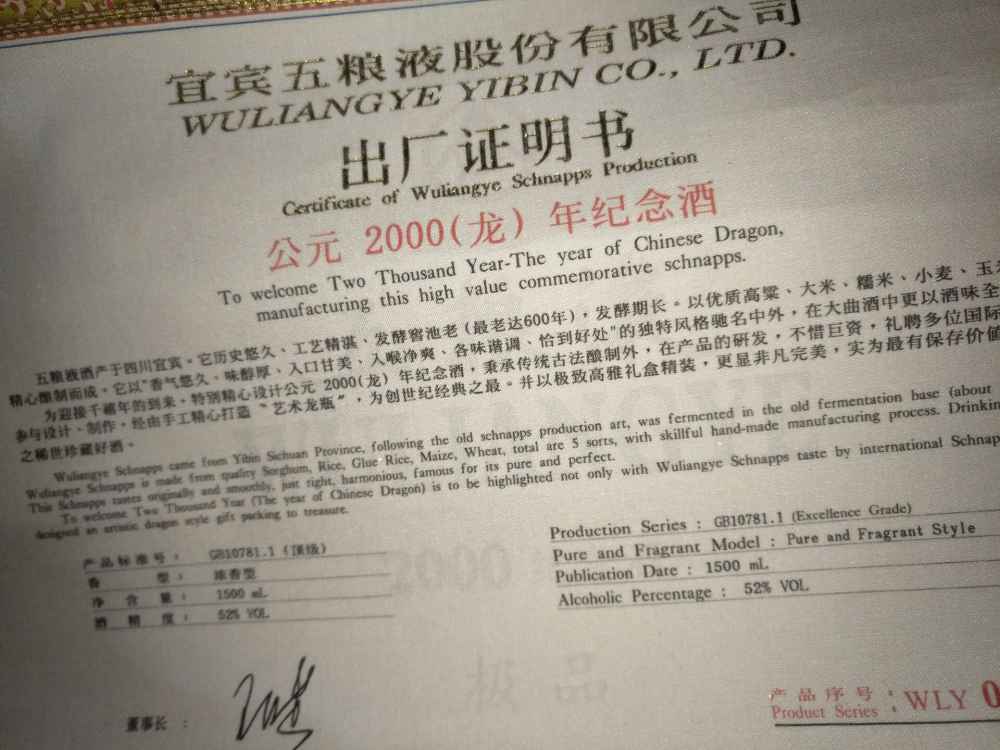 宜宾五粮液股份有限公司
WULIANGYE YIBIN CO., LTD.
出厂证明书
Certificate of Wuliangye Schnapps Production
公元 2000(龙) 年纪念酒
To welcome Two Thousand Year-The year of Chinese Dragon,
manufacturing this high value commemorative schnapps.
五粮液酒产于四川宜宾。它历史悠久、工艺精湛、发酵窖池老（最老达600年），发酵期长。以优质高粱、大米、糯米、小麦、玉
精心酿制而成。它以"香气悠久、味醇厚、入口甘美、入喉净爽、各味谐调、恰到好处"的独特风格驰名中外，在大曲酒中更以酒味全
为迎接千禧年的到来，特别精心设计公元 2000(龙) 年纪念酒，秉承传统古法酿制外，在产品的研发，不惜巨资，礼聘多位国际
参与设计、制作。经由手工精心打造"艺术龙瓶"，为创世纪经典之最。并以极致高雅礼盒精装，更显非凡完美，实为最有保存价值
之稀世珍藏好酒。
Wuliangye Schnapps came from Yibin Sichuan Province, following the old schnapps production art, was fermented in the old fermentation base (about
Wuliangye Schnapps is made from quality Sorghum, Rice, Glue Rice, Maize, Wheat, total are 5 sorts, with skillful hand-made manufacturing process. Drinkin
This Schnapps tastes originally and smoothly, just right, harmonious, famous for its pure and perfect.
To welcome Two Thousand Year (The year of Chinese Dragon) is to be highlighted not only with Wuliangye Schnapps taste by international Schnap
designed an artistic dragon style gift packing to treasure.
产品标准号： GB10781.1 (顶级)
香 型： 浓香型
净 含 量： 1500 mL
酒 精 度： 52% VOL
Production Series : GB10781.1 (Excellence Grade)
Pure and Fragrant Model : Pure and Fragrant Style
Publication Date : 1500 mL
Alcoholic Percentage : 52% VOL
2000
极品
董事长：
产品序号：
Product Series : WLY 0